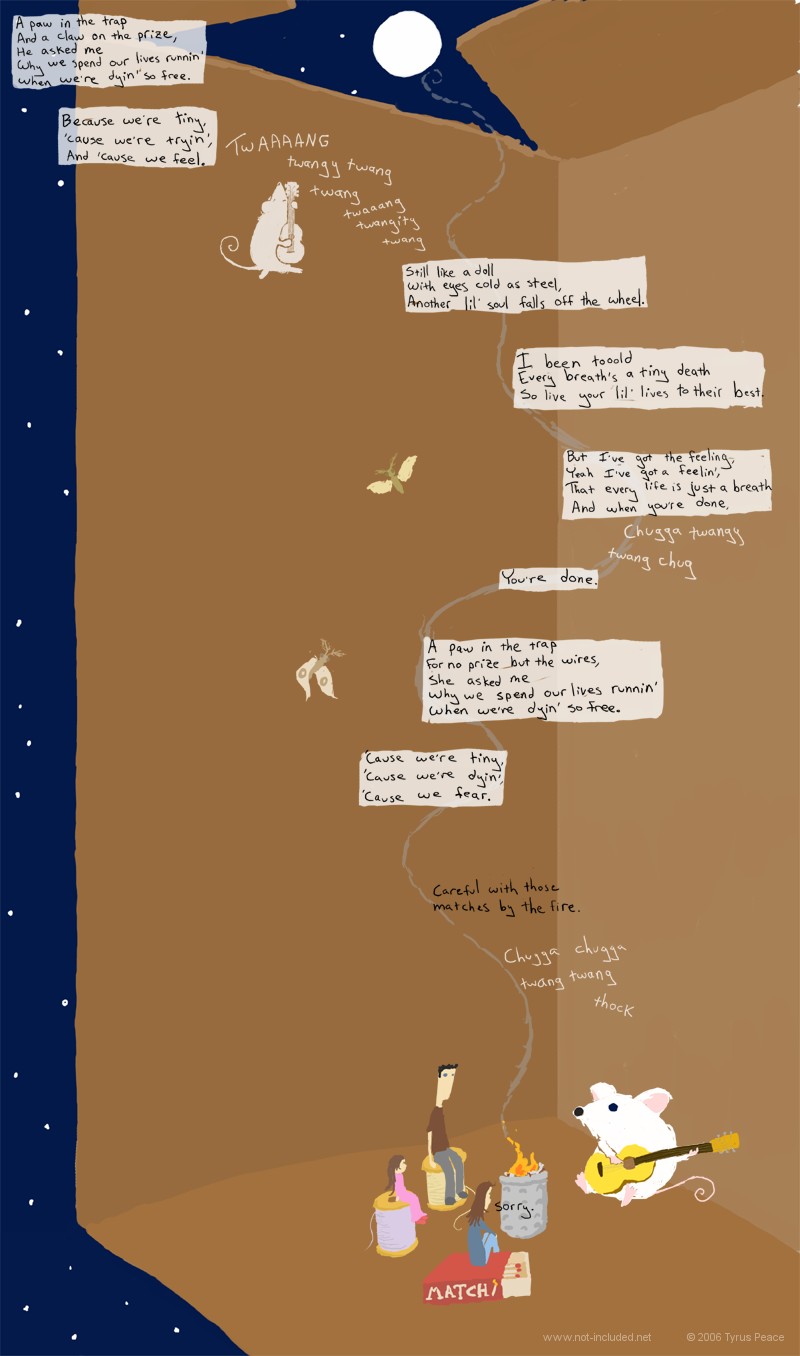 A paw in the trap
And a claw on the prize,
He asked me
Why we spend our lives runnin'
When we're dyin' so free.
Because we're tiny,
'cause we're tryin',
And 'cause we feel.
TWAAAANG
twangy twang
twang
twaaang
twangity
twang
Still like a doll
With eyes cold as steel,
Another lil' soul falls off the wheel.
I been tooold
Every breath's a tiny death
So live your lil' lives to their best.
But I've got the feeling,
Yeah I've got a feelin',
That every life is just a breath
And when you're done,
Chugga twangy
twang chug
You're done.
A paw in the trap
For no prize but the wires,
She asked me
Why we spend our lives runnin'
When we're dyin' so free.
'Cause we're tiny,
'Cause we're dyin',
'Cause we fear.
Careful with those
matches by the fire.
Chugga chugga
twang twang
thock
sorry.
MATCH
www.not-included.net © 2006 Tyrus Peace